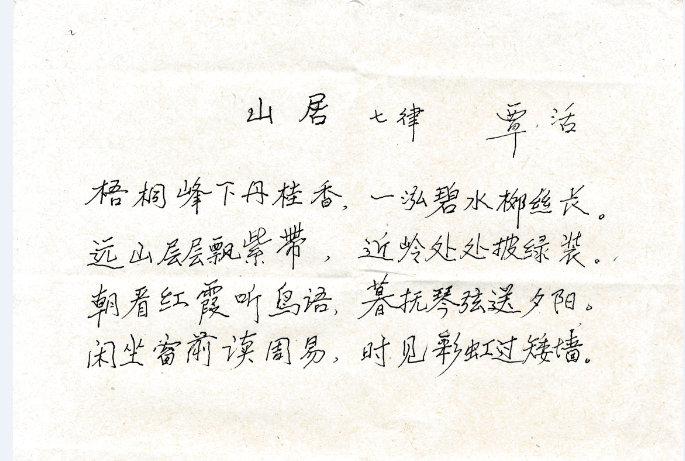 山居 七律 覃活
梧桐峰下丹桂香，一泓碧水柳丝长。
远山层层飘紫带，近岭处处披绿装。
朝看红霞听鸟语，暮抚琴弦送夕阳。
闲坐窗前读周易，时见彩虹过矮墙。